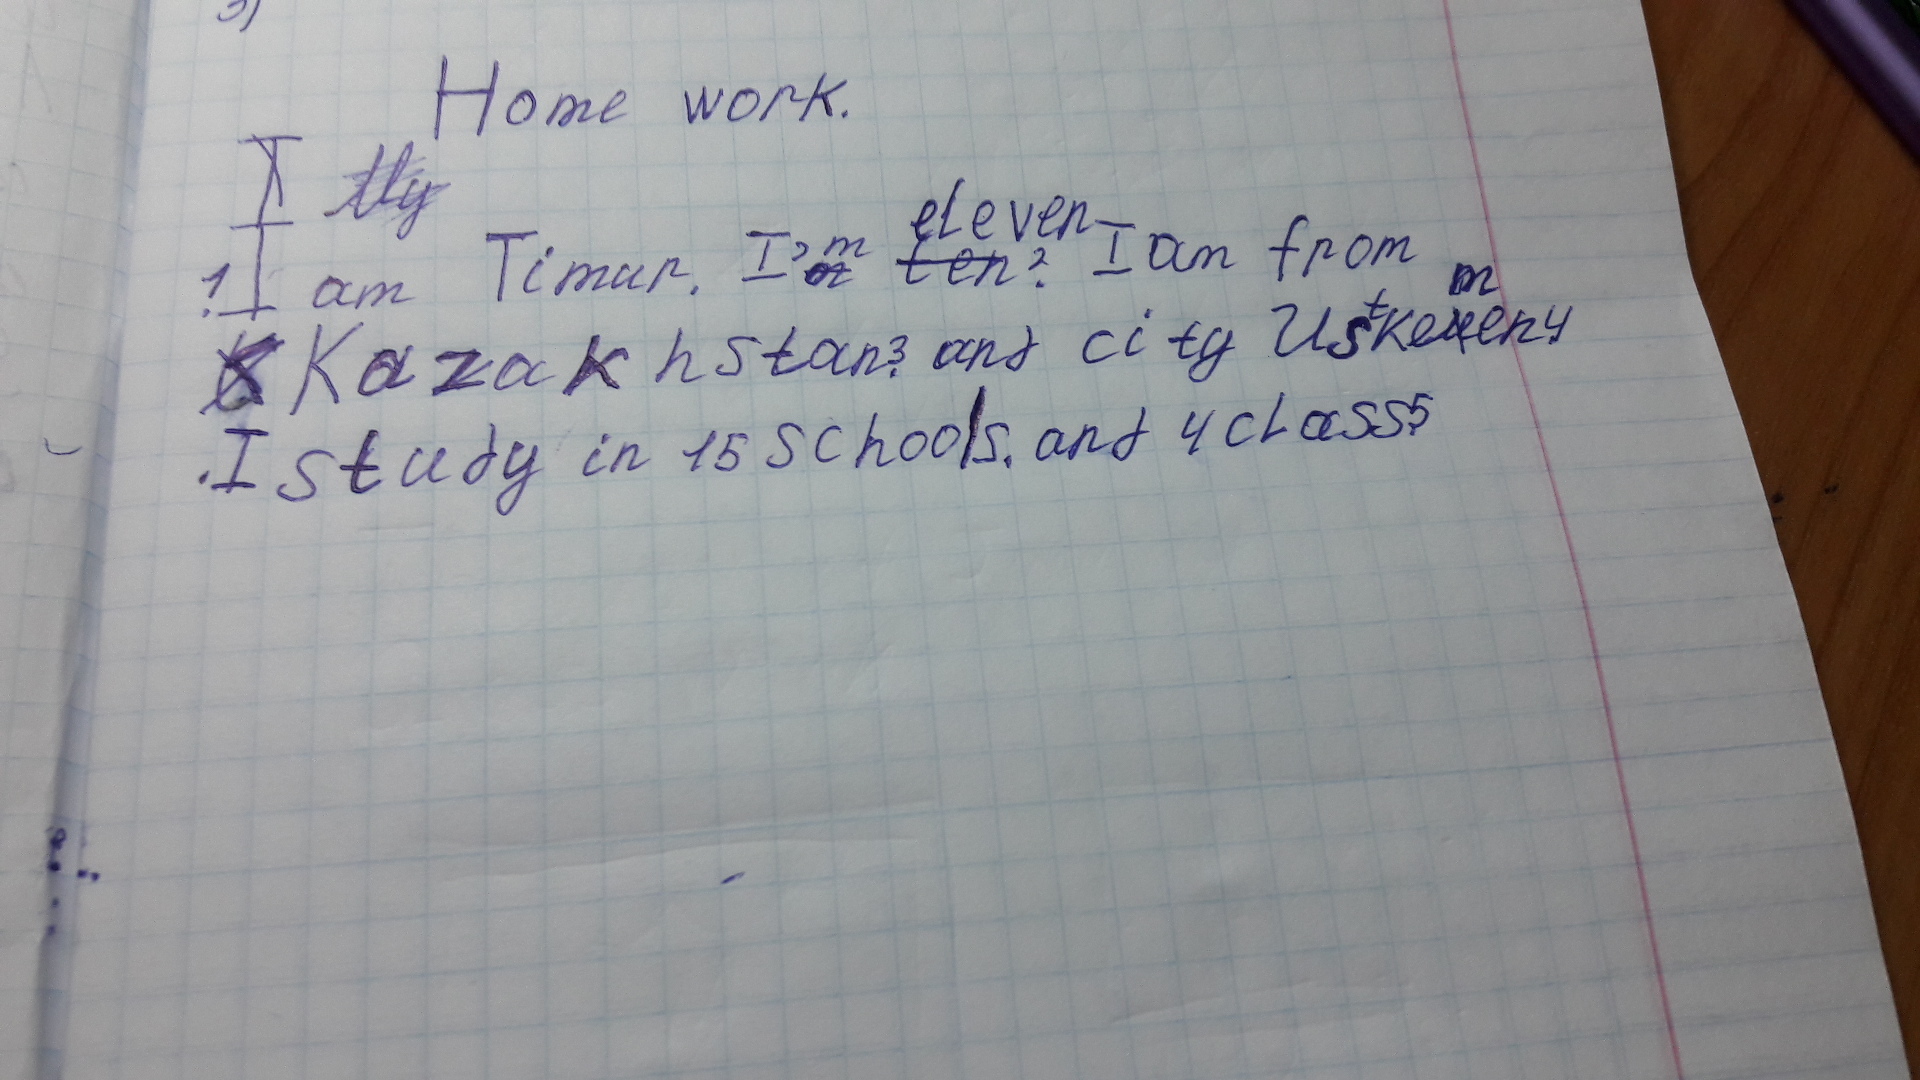 3)
Home work.
I
1. I am Timur. I'm eleven I am from
Kazakhstan? and city Ustkemen4
.I study in 15 schools. and 4 class5